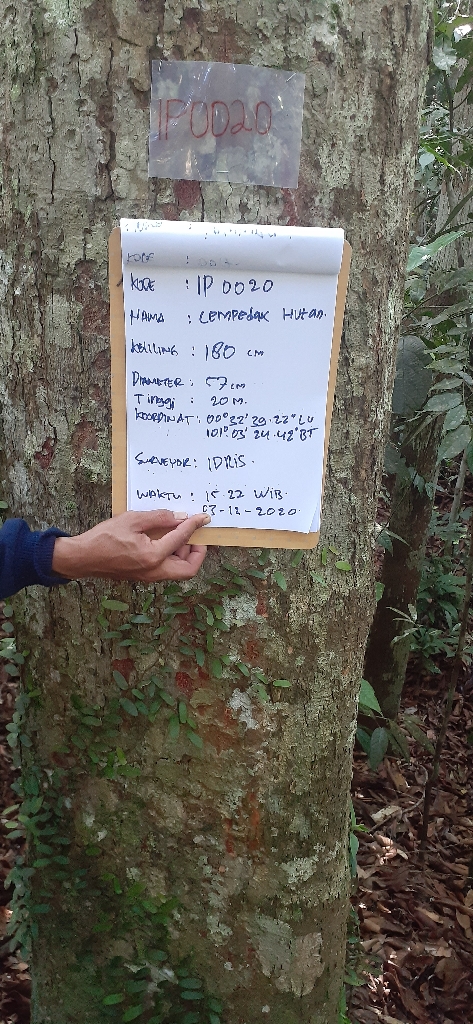 IP0020
KODE : IP 0020
NAMA : CEMPEDAK HUTAN.
KELILING : 180 cm
DIAMETER : 57 cm
Tinggi : 20 M.
KOORDINAT : 00° 32' 39.22" LU
101° 03' 24.42" BT
SURVEYOR : IDRIS.
WAKTU : 15.22 WIB.
03-12-2020